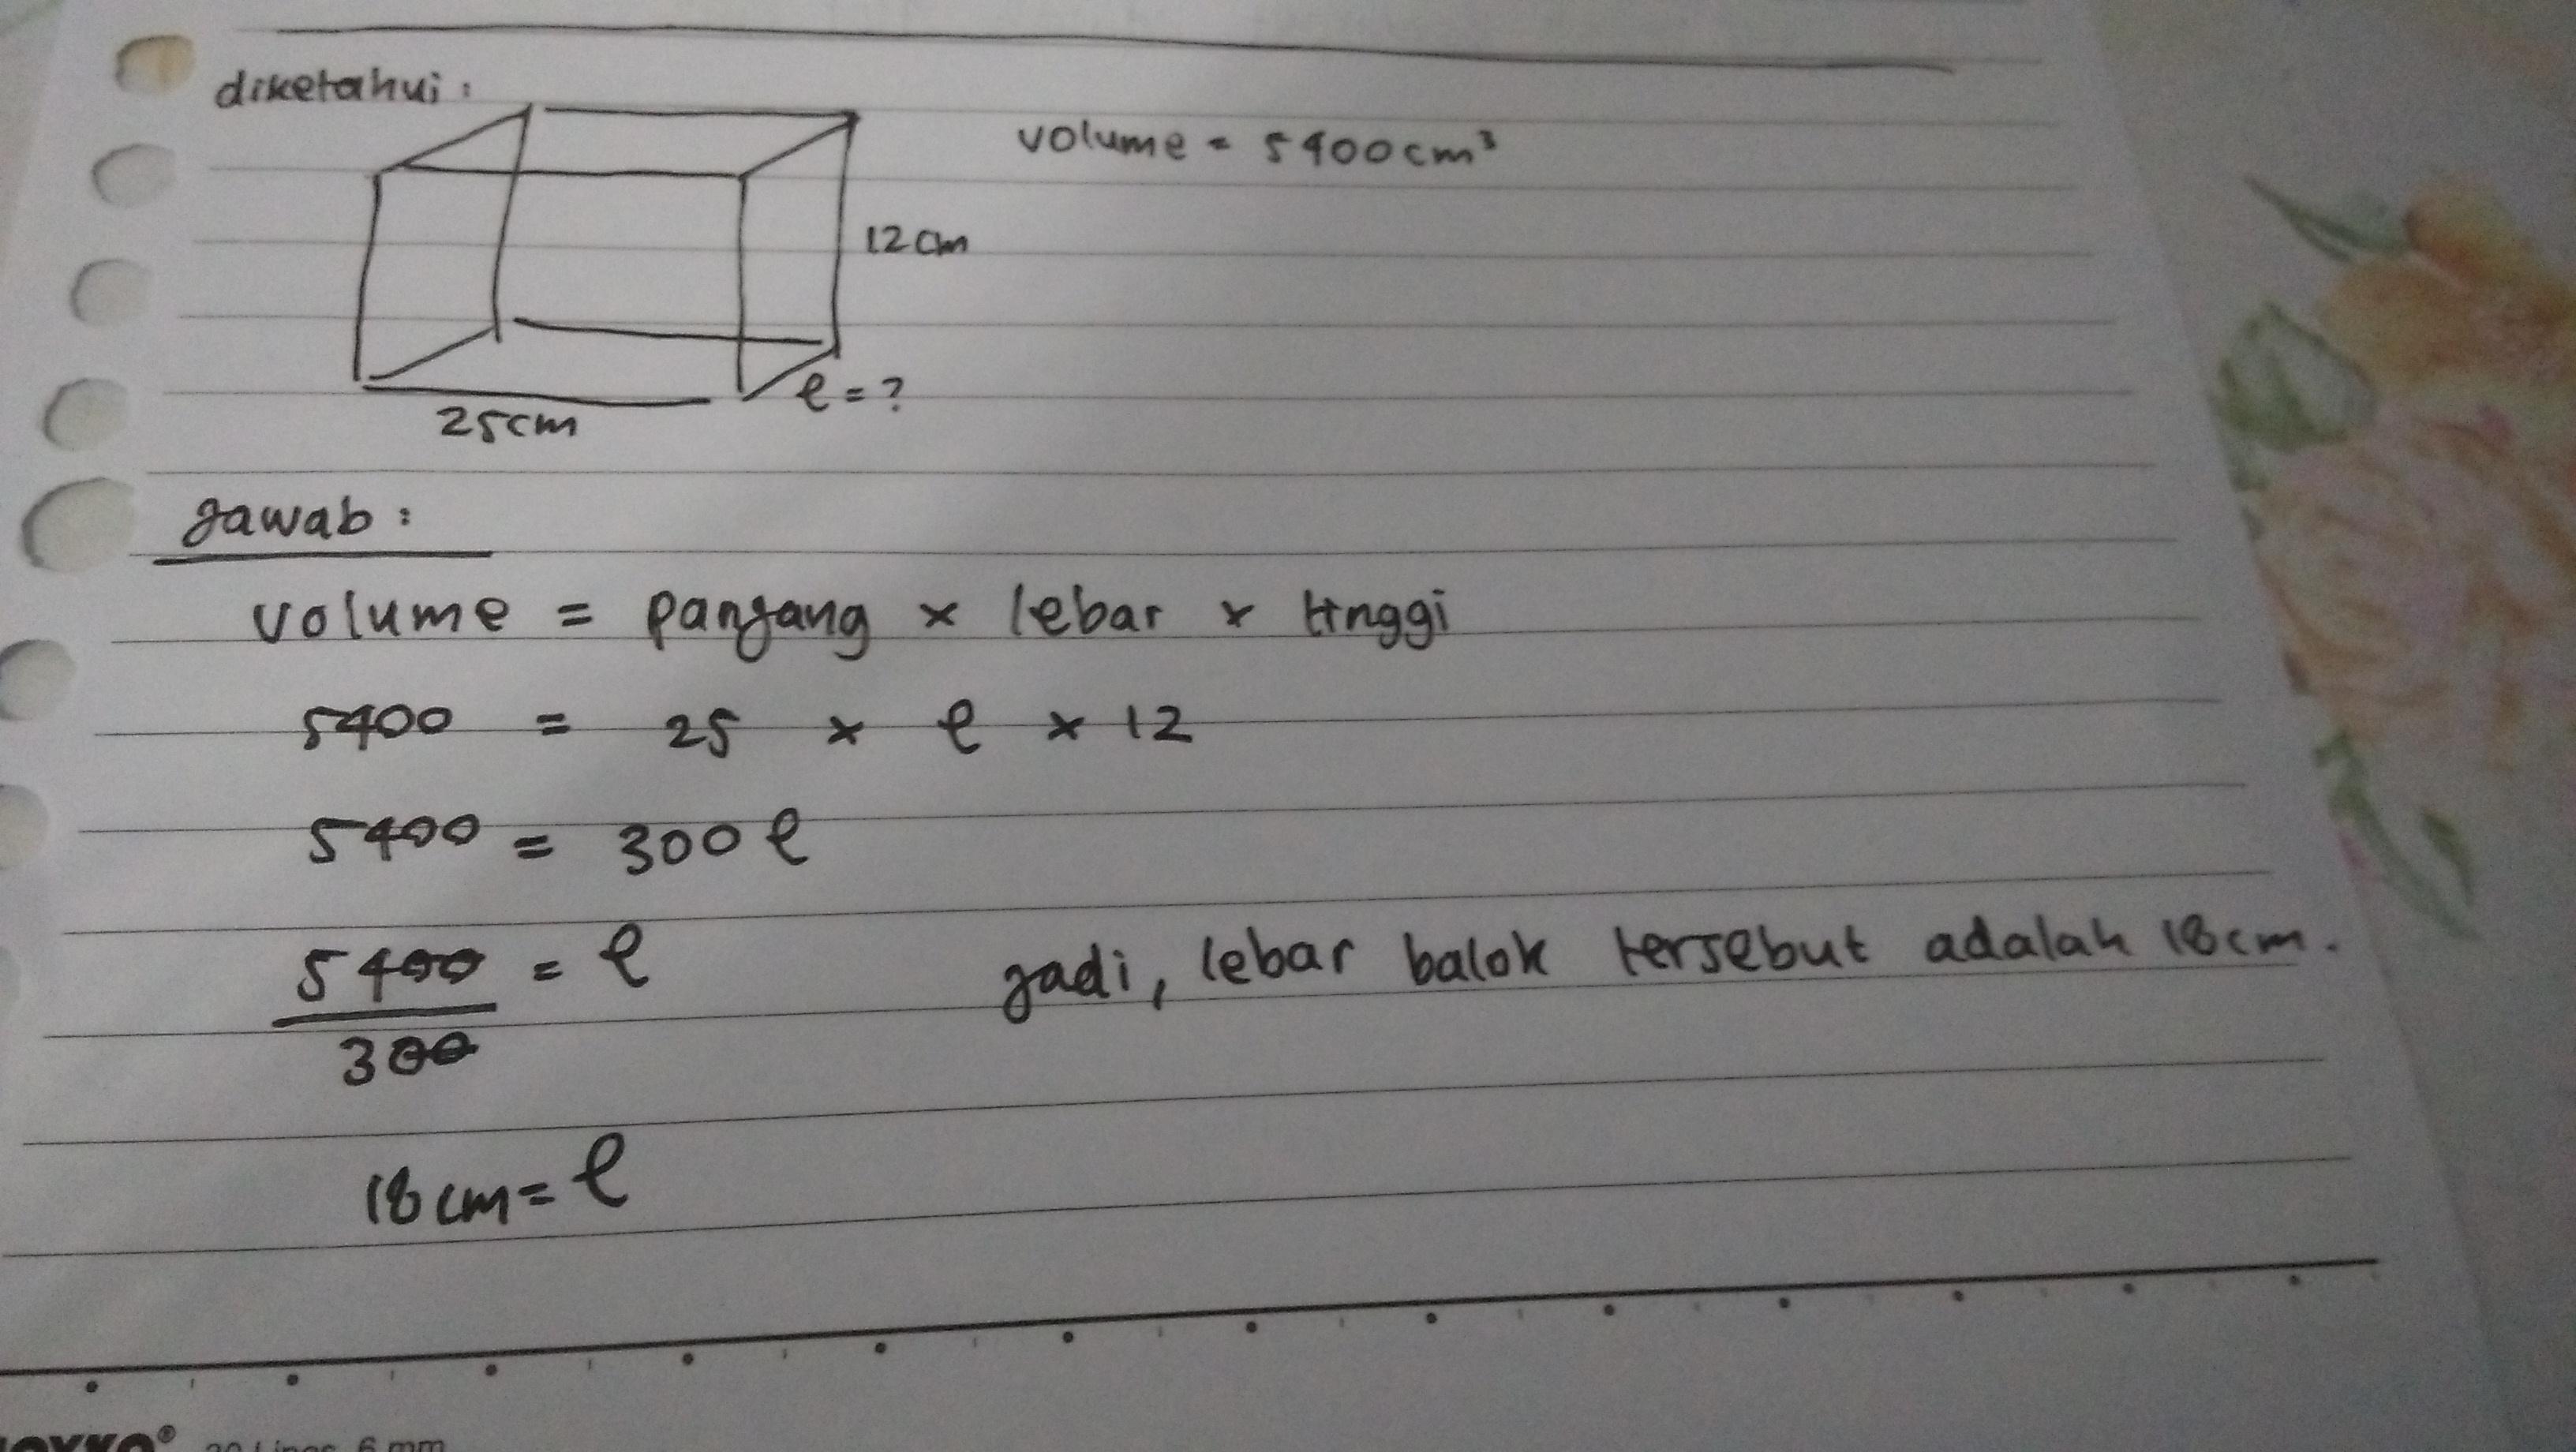 diketahui:
volume = 5400 cm³
12 cm
l = ?
25 cm
Jawab:
volume = panjang × lebar × tinggi
5400 = 25 × l × 12
5400 = 300 l
5400 = l
300
jadi, lebar balok tersebut adalah 18 cm.
18 cm = l
6 mm